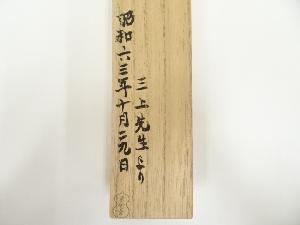 三上先生より
昭和六三年十月二九日